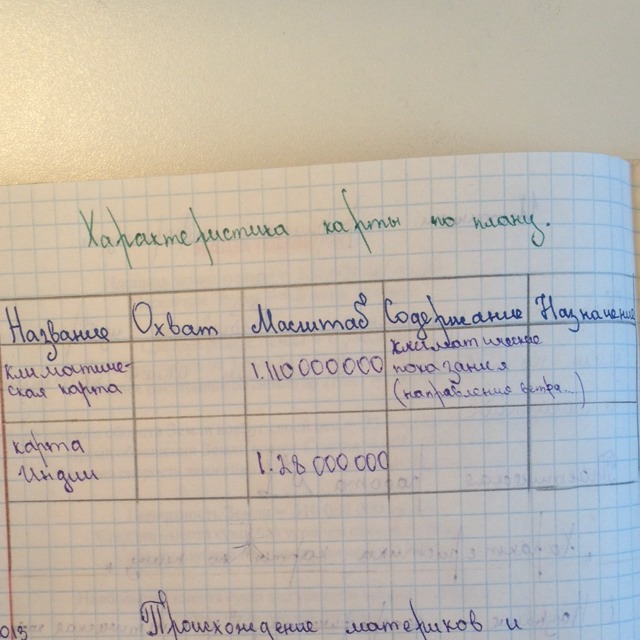 Характеристика карты по плану.
Название Охват Масштаб Содержание Назначение
климатиче-
ская карта
1:110 000 000
климатические
показания
(направление ветра...)
карта
Индии
1:28 000 000
Происхождение материков и